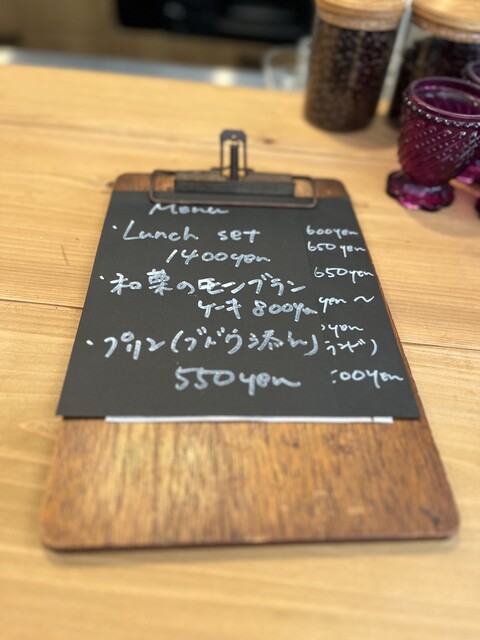 Menu
・Lunch set
1400yen
・和栗のモンブラン
ケーキ 800yen
・プリン(ブドウ添え)
550yen
600yen
650yen
650yen
yen～
yen
ランド)
:00yen